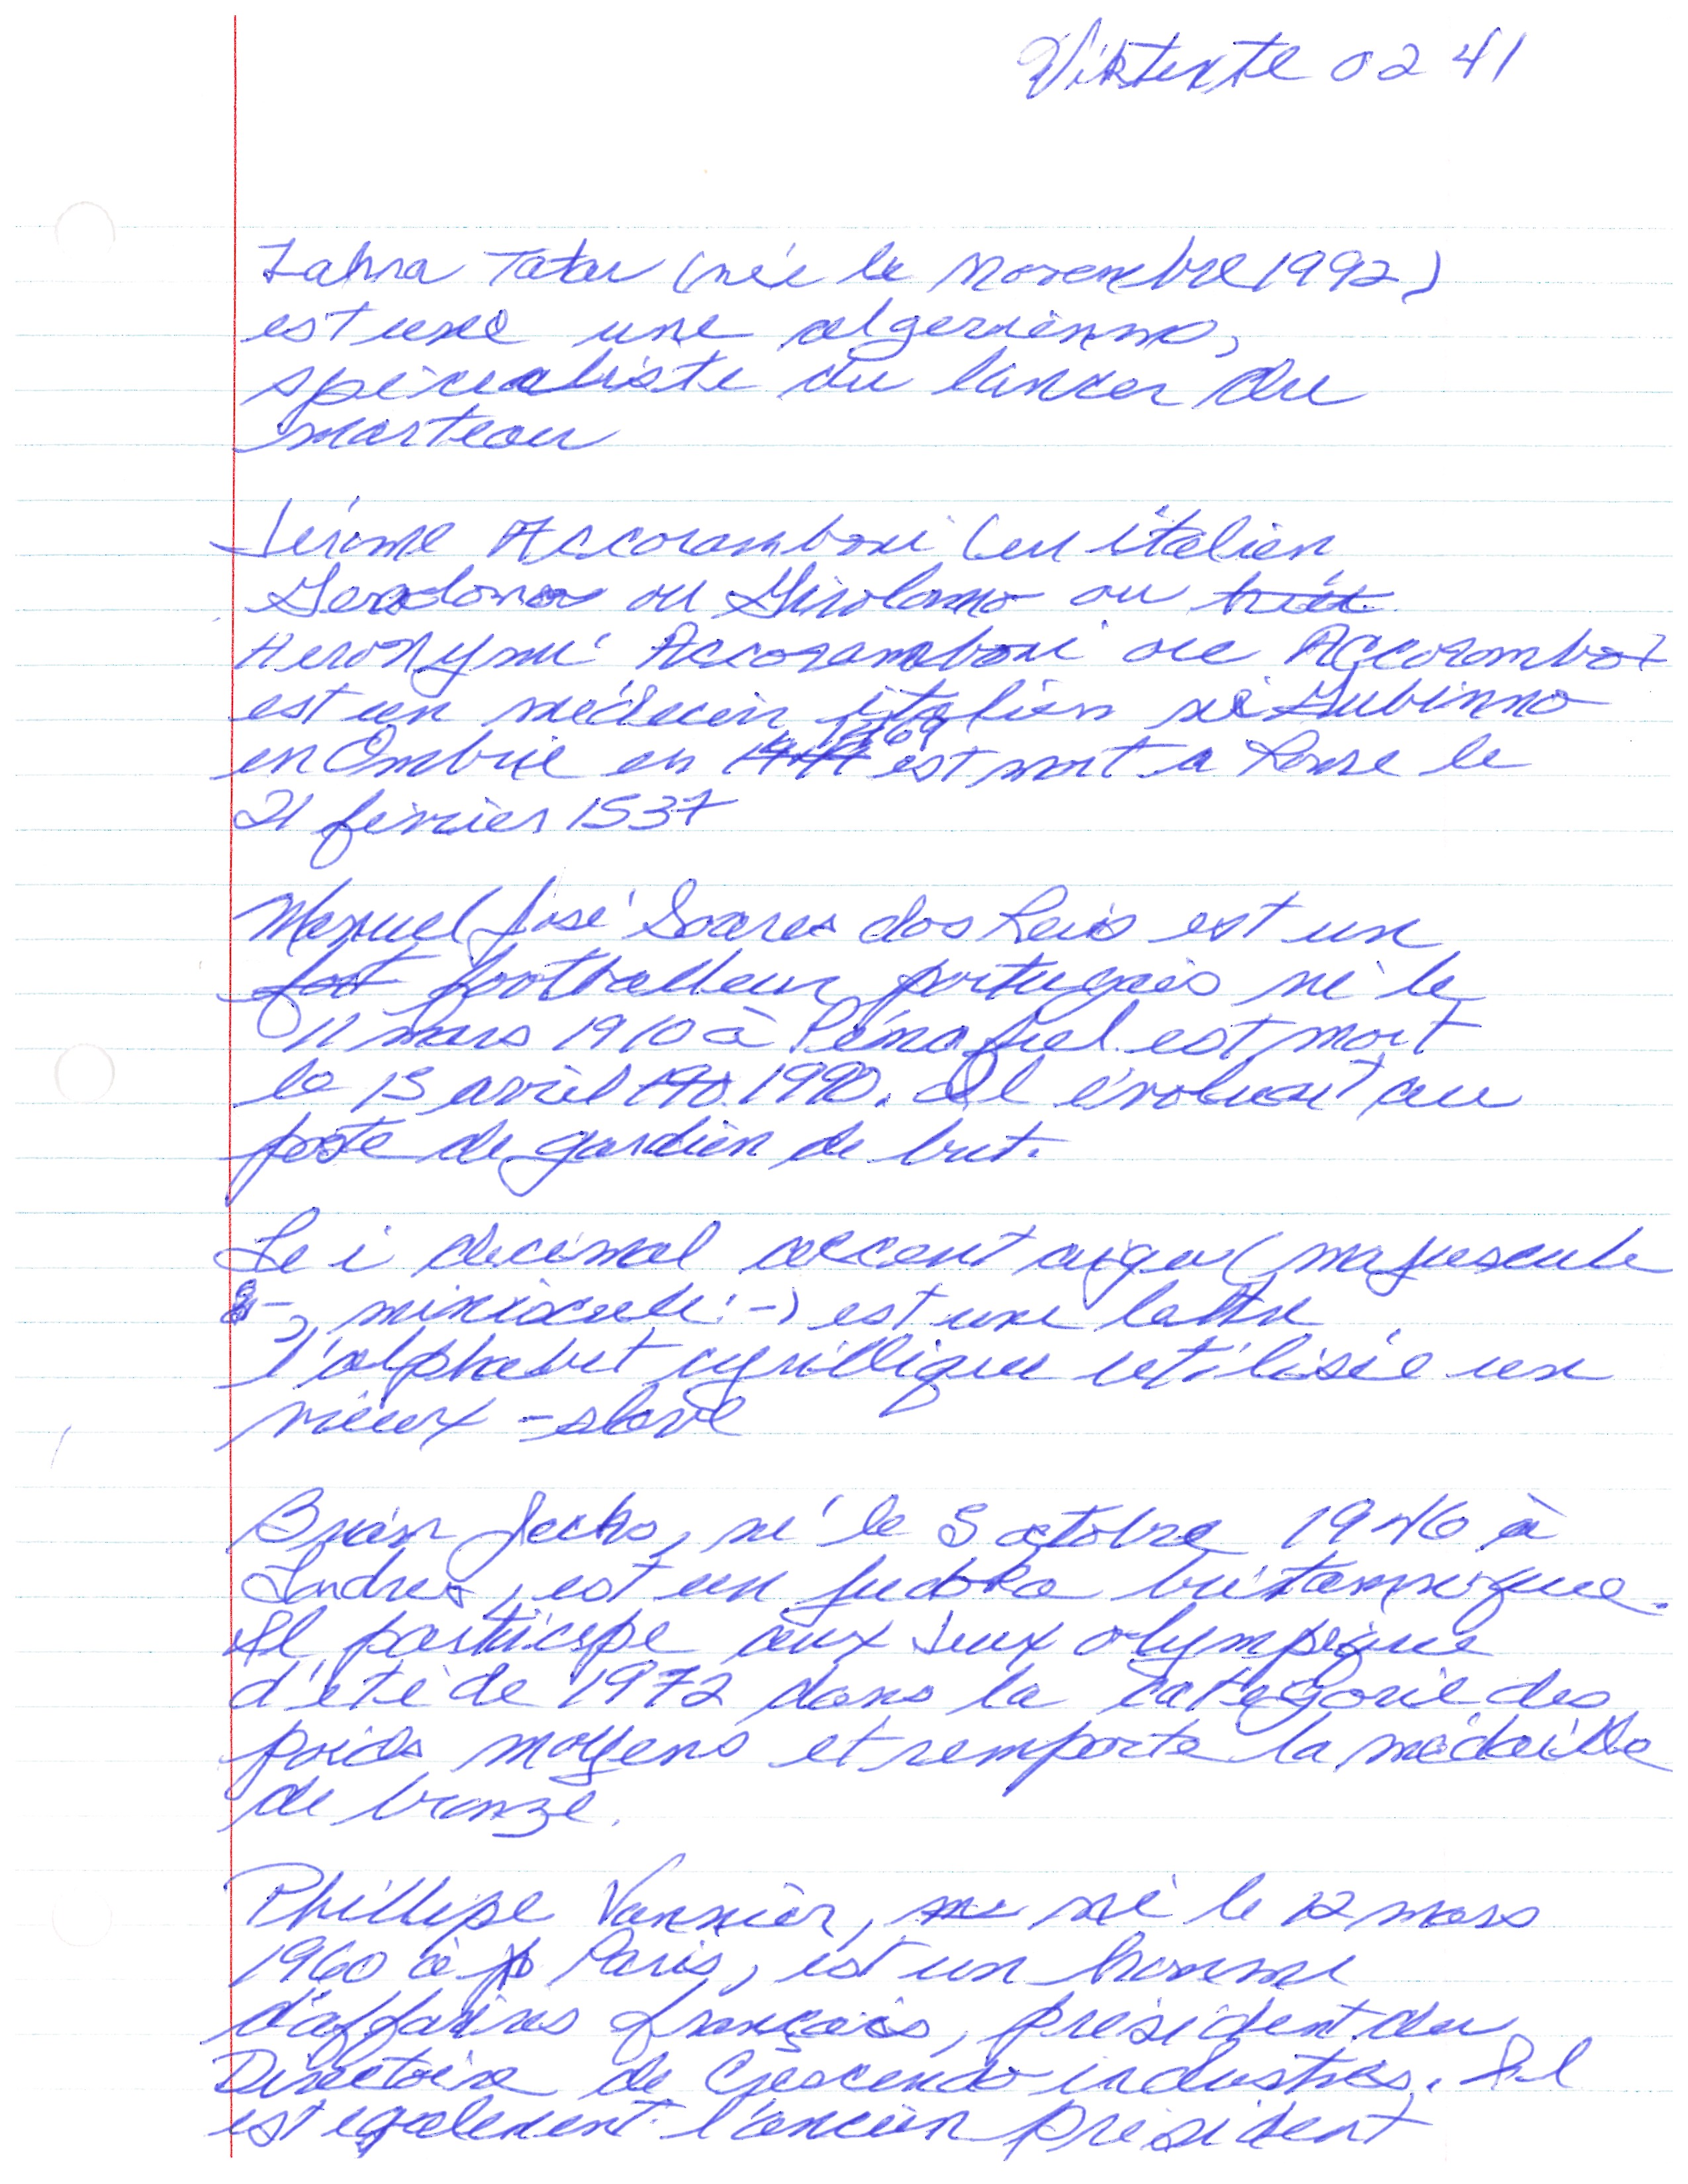 Wiktexte 0241
Zahra Tatar (née le novembre 1992)
est une une algerienne,
spécialiste du lancer du
marteau
Jérôme Accoramboni (en italien
ou Girolamo ou
Heronymi Accoramboni ou Accorambo
est un médecin italien né Gubinno
en Ombrie en 1469 est mort a Rome le
21 février 1537
Manuel José Soares dos Reis est un
foot footballeur portugais né le
11 mars 1910 à Pénafiel est mort
le 15 avril 190. 1990. Il évoluait au
poste de gardien de but.
Le i decimal accent aigu (majuscule
-, miniscule : -) est une lettre
l'alphabet cyrillique utilisée en
vieux - slave
Brian Jacks, né le 5 octobre 1946 à
Londres, est un judoka britannique.
Il participe aux jeux olympique
d'été de 1972 dans la catégorie des
poids moyens et remporte la médaille
de bronze.
Phillipe Vannier, né né le 12 mars
1960 à p Paris, est un homme
d'affaires français, président du
Directoire de Crescendo industries. Il
est egalement l'ancien président